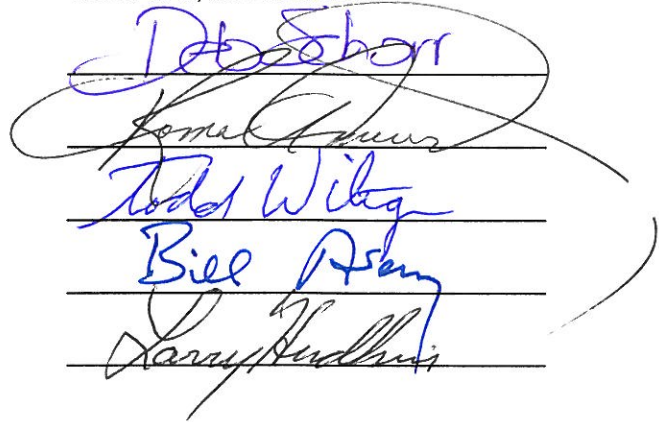 Deb Schorr
Roma Amundson
Todd Wiltgen
Bill Avery
Larry Hudkins